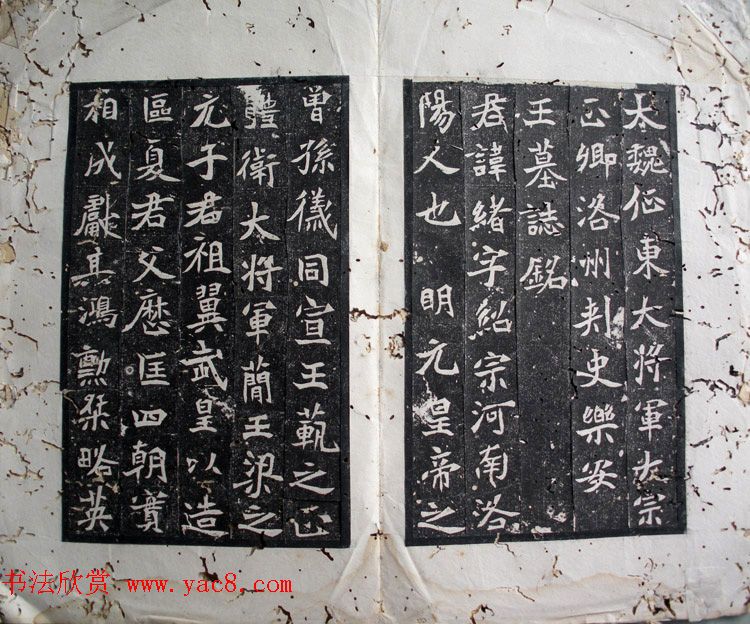 大魏征東大將軍大宗
正卿洛州刾史樂安
王墓誌銘
君諱緒字紹宗河南洛
陽人也明元皇帝之
曾孫儀同宣王範之正
體衛大將軍簡王梁之
元子君祖翼武皇以造
區夏君父歷匡四朝實
相成獻其鴻勲桀略英
书法欣赏 www.yac8.com